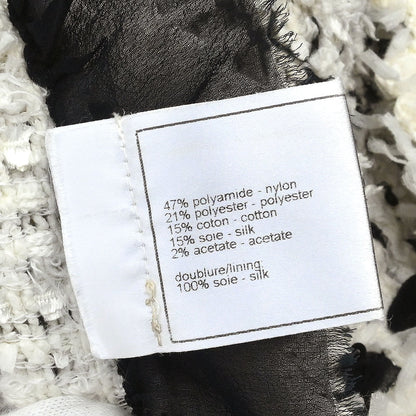 47% polyamide - nylon
21% polyester - polyester
15% coton - cotton
15% soie - silk
2% acetate - acetate
doublure/lining:
100% soie - silk